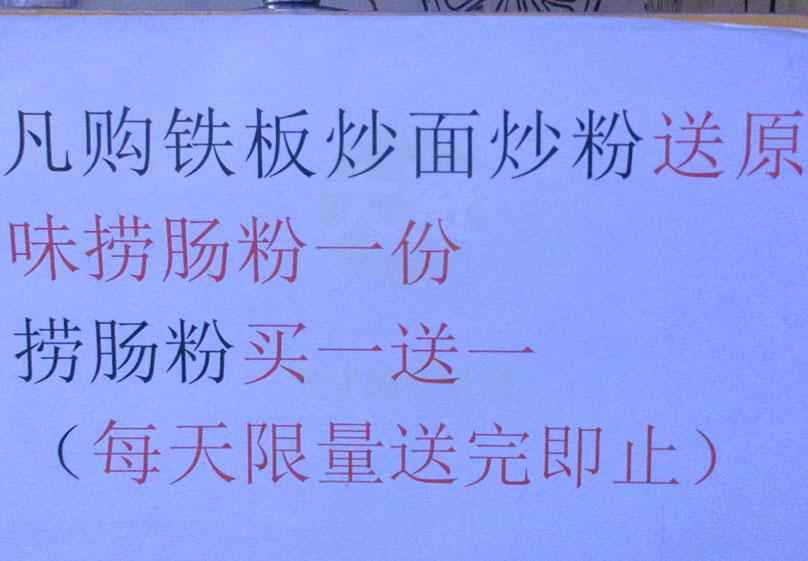 凡购铁板炒面炒粉送原
味捞肠粉一份
捞肠粉买一送一
（每天限量送完即止）